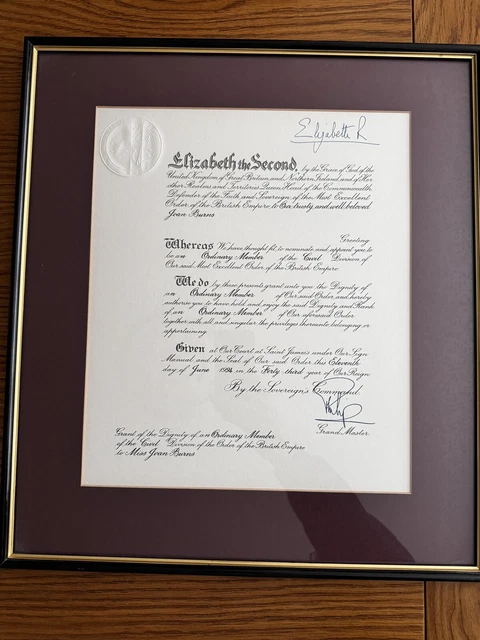 Elizabeth R
Elizabeth the Second, by the Grace of God of the
United Kingdom of Great Britain and Northern Ireland and of Her
other Realms and Territories Queen, Head of the Commonwealth,
Defender of the Faith and Sovereign of the Most Excellent
Order of the British Empire to Our trusty and well beloved
Joan Burns
Greeting
Whereas We have thought fit to nominate and appoint you to
be an Ordinary Member of the Civil Division of
Our said Most Excellent Order of the British Empire
We do by these presents grant unto you the Dignity of
an Ordinary Member of Our said Order and hereby
authorise you to have hold and enjoy the said Dignity and Rank
of an Ordinary Member of Our aforesaid Order
together with all and singular the privileges thereunto belonging or
appertaining.
Given at Our Court at Saint James's under Our Sign
Manual and the Seal of Our said Order this Eleventh
day of June 1994 in the Forty third year of Our Reign
By the Sovereign's Command.
Philip
Grand Master.
Grant of the Dignity of an Ordinary Member
of the Civil Division of the Order of the British Empire
to Miss Joan Burns